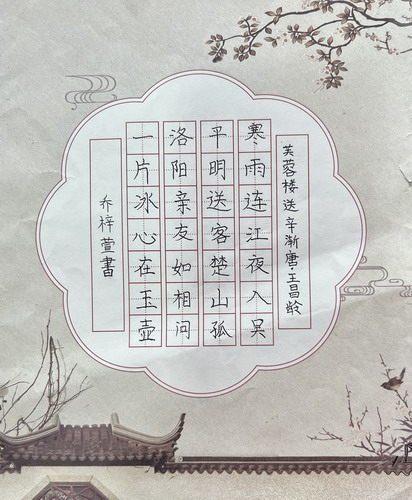 芙蓉楼送辛渐唐·王昌龄
寒雨连江夜入吴
平明送客楚山孤
洛阳亲友如相问
一片冰心在玉壶
乔梓萱書